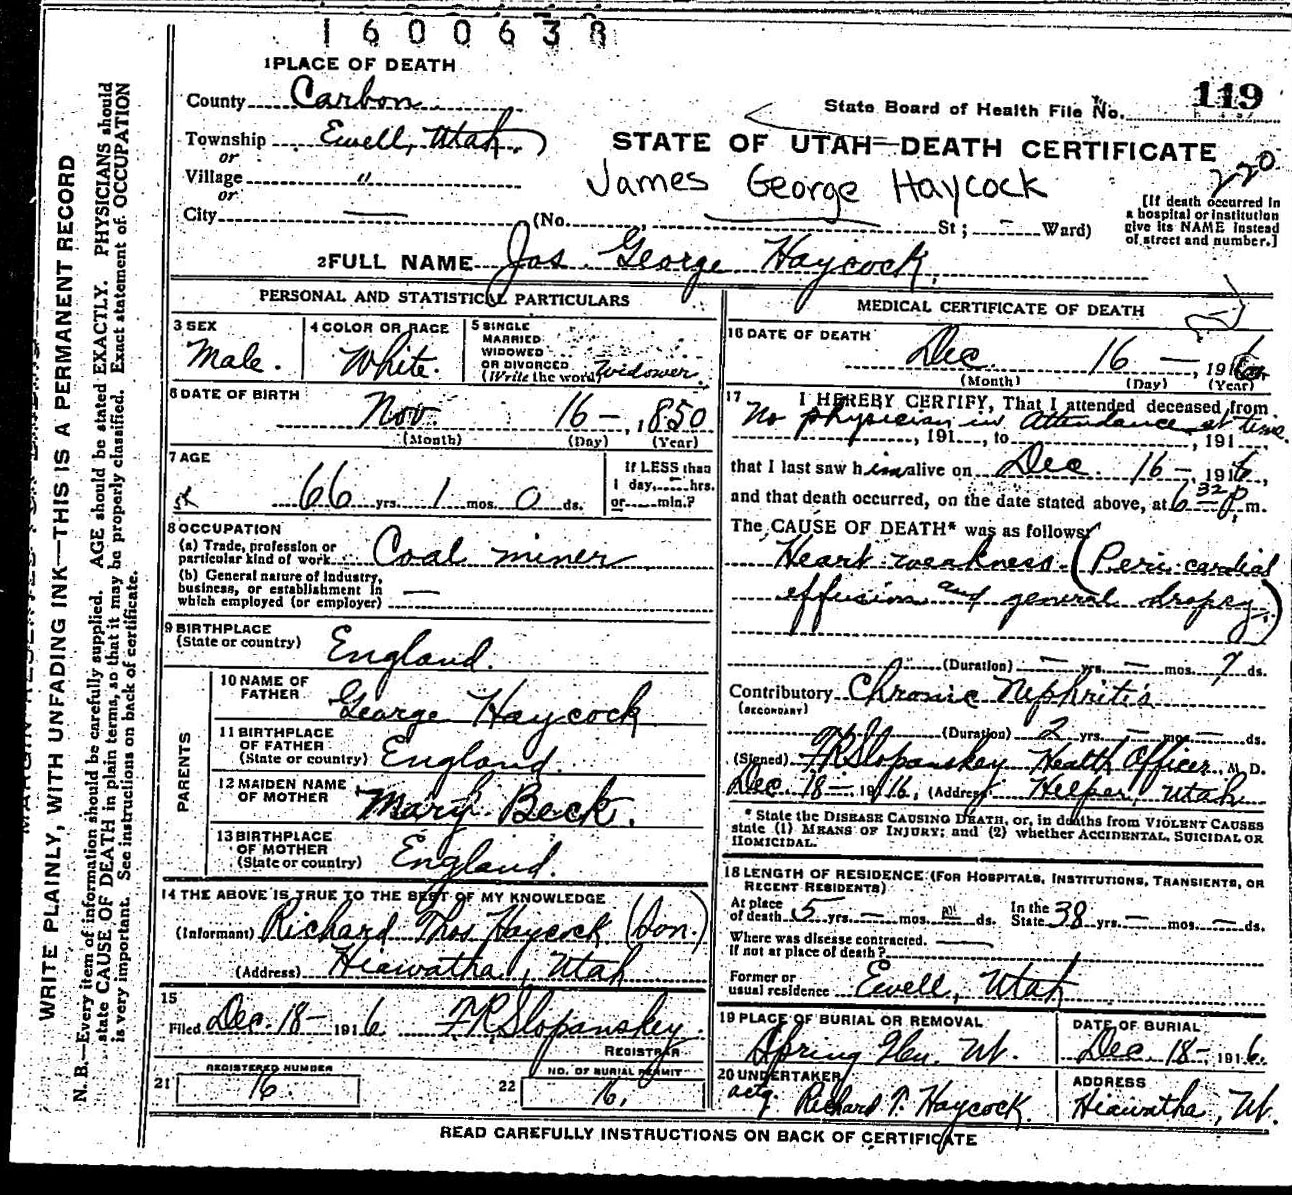 1600638
1 PLACE OF DEATH
County Carbon
State Board of Health File No. 119
Township Ewell, Utah.
or
STATE OF UTAH—DEATH CERTIFICATE
Village "
or
James George Haycock
220
City — (No. St; - Ward)
[If death occurred in
a hospital or institution
give its NAME instead
of street and number.]
2 FULL NAME Jas. George Haycock.
PERSONAL AND STATISTICAL PARTICULARS
3 SEX
Male.
4 COLOR OR RACE
White.
5 SINGLE
MARRIED
WIDOWED
OR DIVORCED
(Write the word) Widower.
6 DATE OF BIRTH
Nov. 16 -, 1850
(Month) (Day) (Year)
7 AGE
66 yrs. 1 mos. 0 ds.
If LESS than
1 day, — hrs.
or — min.?
8 OCCUPATION
(a) Trade, profession or
particular kind of work Coal miner
(b) General nature of industry,
business, or establishment in
which employed (or employer) —
9 BIRTHPLACE
(State or country) England.
PARENTS
10 NAME OF
FATHER George Haycock
11 BIRTHPLACE
OF FATHER
(State or country) England.
12 MAIDEN NAME
OF MOTHER Mary Beck.
13 BIRTHPLACE
OF MOTHER
(State or country) England.
14 THE ABOVE IS TRUE TO THE BEST OF MY KNOWLEDGE
(Informant) Richard Thos Haycock (Son.)
(Address) Hiawatha, Utah
15
Filed Dec. 18 - 1916 F R Slopanskey.
REGISTRAR
21 REGISTERED NUMBER
16.
22 NO. OF BURIAL PERMIT
16.
MEDICAL CERTIFICATE OF DEATH
16 DATE OF DEATH
Dec. 16 —, 1916
(Month) (Day) (Year)
17 I HEREBY CERTIFY, That I attended deceased from
No physician in Attendance at time.
, 191 , to , 191
that I last saw him alive on Dec. 16 - 1916,
and that death occurred, on the date stated above, at 6 32 P. m.
The CAUSE OF DEATH* was as follows:
Heart weakness (Peri-cardial
effusion and general dropsy.)
(Duration) — yrs. — mos. 7 ds.
Contributory Chronic Nephritis
(SECONDARY)
(Duration) 2 yrs. — mos. — ds.
(Signed) F R Slopanskey Health Officer, M. D.
Dec. 18 - 1916, (Address) Helper, Utah
* State the DISEASE CAUSING DEATH, or, in deaths from VIOLENT CAUSES
state (1) MEANS OF INJURY; and (2) whether ACCIDENTAL, SUICIDAL OR
HOMICIDAL.
18 LENGTH OF RESIDENCE (FOR HOSPITALS, INSTITUTIONS, TRANSIENTS, OR
RECENT RESIDENTS)
At place
of death 5 yrs. — mos. ds. In the State 38 yrs. — mos. — ds.
Where was disease contracted.
if not at place of death?
Former or
usual residence Ewell, Utah
19 PLACE OF BURIAL OR REMOVAL
Spring Glen. Ut.
DATE OF BURIAL
Dec. 18 -, 1916.
20 UNDERTAKER
actg. Richard T. Haycock.
ADDRESS
Hiawatha, Ut.
READ CAREFULLY INSTRUCTIONS ON BACK OF CERTIFICATE
WRITE PLAINLY, WITH UNFADING INK—THIS IS A PERMANENT RECORD
N. B.—Every item of information should be carefully supplied. AGE should be stated EXACTLY. PHYSICIANS should
state CAUSE OF DEATH in plain terms, so that it may be properly classified. Exact statement of OCCUPATION
is very important. See instructions on back of certificate.